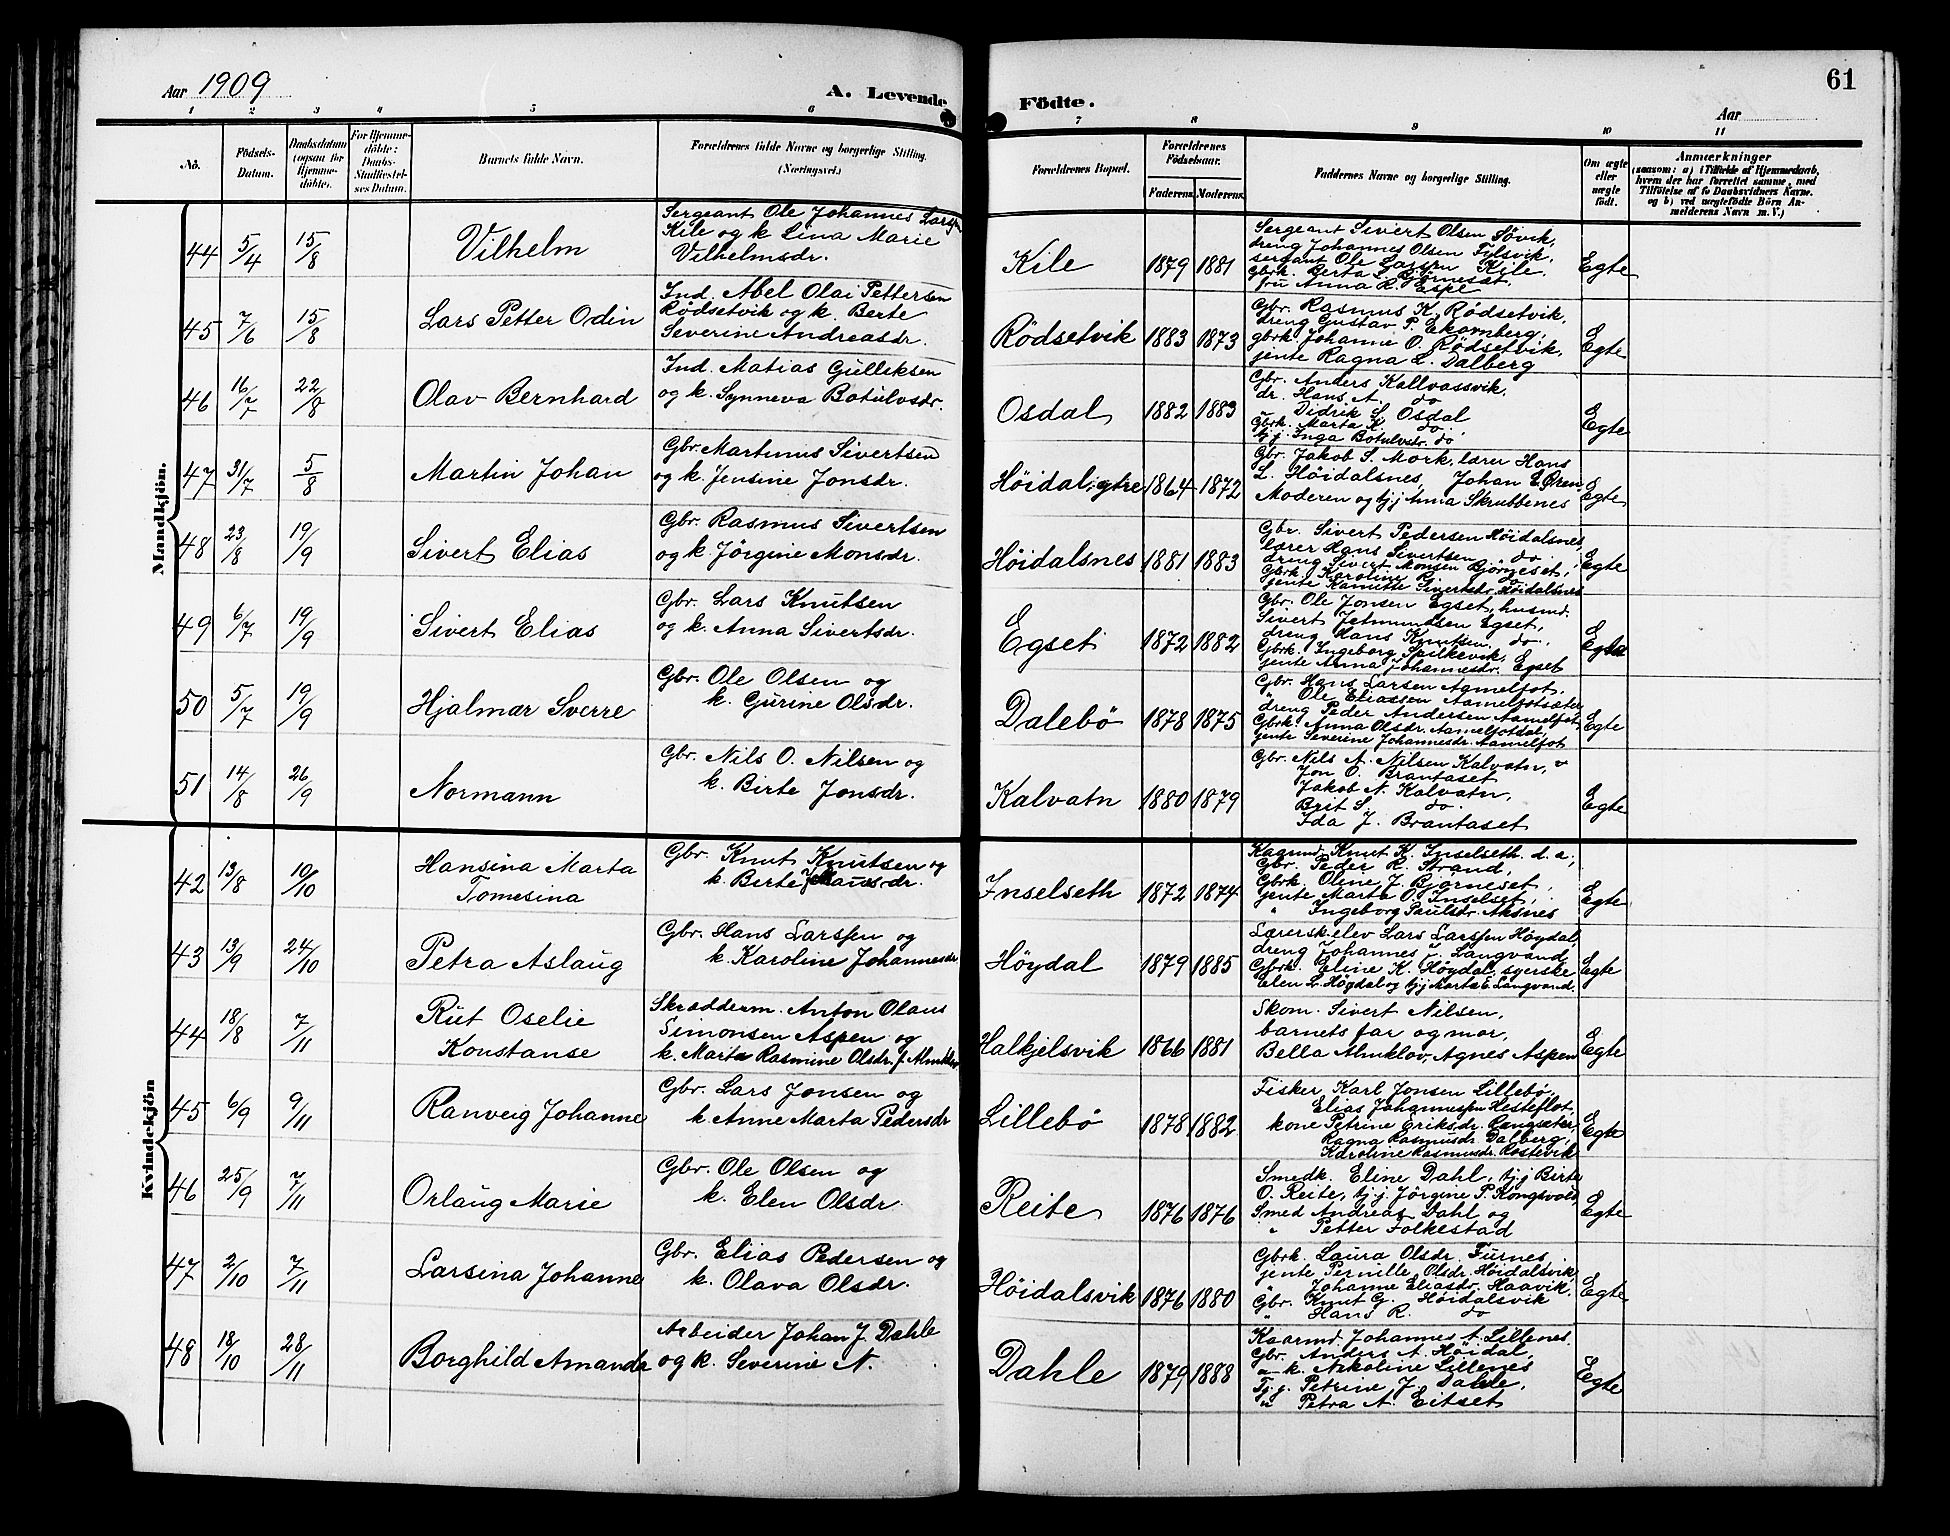 Aar 1909
A. Levende
Födte.
Aar
61
1 2 3 4 5 6 7 8 9 10 11
No.
Födsels-
Datum.
Daabsdatum
(ogsaa for
Hjemme-
döbte).
For Hjemme-
döbte:
Daabs-
Stadfæstel-
ses Datum.
Barnets fulde Navn.
Forældrenes fulde Navne og borgerlige Stilling.
(Næringsvei.)
Forældrenes Bopæl.
Forældrenes
Födselsaar.
Faderens. Moderens.
Faddernes Navne og borgerlige Stilling.
Om ægte
eller
uægte
födt.
Anmærkninger
(saasom: a) i Tilfælde af Hjemmedaab,
hvem der har forrettet samme, med
Tilföielse af to Daabsvidners Navne.
og b) ved uægtefödte Börn An-
melderens Navn m. V.)
Mandkjön.
44 5/4 15/8 Vilhelm
Sergeant Ole Johannes Larssen
Kile og k. Lina Marie
Vilhelmsdr.
Kile 1879 1881
Sergeant Sivert Olsen Søvik,
dreng Johannes Olsen Fylsvik,
sergant Ole Larssen Kile.
Gbrk. Berta L. Bjørneset.
fru Anna R. Espe
Egte
45 7/6 15/8 Lars Petter Odin
Ind. Abel Olai Pettersen
Rødsetvik og k. Berte
Severine Andreasdr.
Rödsetvik 1883 1873
Gbr. Rasmus K. Rödsetvik,
dreng Gustav P. Ekornberg,
gbrk. Johanne O. Rödsetvik,
jente Ragna L. Dalberg
Egte
46 16/7 22/8 Olav Bernhard
Ind. Matias Gulliksen
og k. Synneva Botulvsdr.
Osdal 1882 1883
Gbr. Anders Kallvassvik.
dr. Hans A. do
" Didrik S. Osdal
Gbrk. Marta K. do.
tj.j. Inga Botulvstr. do
Egte
47 31/7 5/8 Martin Johan
Gbr. Martinus Sivertsen
og k. Jensine Jonsdr.
Höidal, ytre 1864 1872
Gbr. Jakob S. Mork, lærer Hans
L. Höidalsnes, Johan E Ören,
Moderen og tj.j Anna Skrubbenes
Egte
48 23/8 19/9 Sivert Elias
Gbr. Rasmus Sivertsen
og k. Jörgine Monsdr.
Höidalsnes 1881 1883
Gbr. Sivert Pedersen Höidalsnes,
lærer Hans Sivertsen do.
dreng Sivert Monsen Björneset,
Gbrk. Karoline R. do
jente Kamitte Sivertsdr. Höidalsnes
Egte
49 6/7 19/9 Sivert Elias
Gbr. Lars Knutsen
og k. Anna Sivertsdr.
Egset 1872 1882
Gbr. Ole Jonsen Egset, husmd.
Sivert Jetmundsen Egset,
dreng Hans Knutsen do.
Gbrk. Ingeborg Spilkevik,
jente Anna Johannesdr. Egset
Egte
50 5/7 19/9 Hjalmar Sverre
Gbr. Ole Olsen og
k. Gurine Olsdr.
Dalebö 1878 1875
Gbr. Hans Larsen Aamelfot,
" Ole Eliassen Aamelfotsæter
dreng Peder Andersen Aamelfot,
Gbrk. Anna Olsdr. Aamelfotdal,
jente Severine Johannesdr. Aamelfot
Egte
51 14/8 26/9 Normann
Gbr. Nils O. Nilsen og
k. Birte Jonsdr.
Kalvatn 1880 1879
Gbr. Nils A. Nilsen Kalvatn,
Jon O. Brantaset
Jakob N. Kalvatn,
Brit S. do.
Ida J. Brantaset
Egte
Kvindekjön
42 13/8 10/10 Hansina Marta
Tomesina
Gbr. Knut Knutsen og
k. Birte
Inselseth 1872 1874
Kaarmd. Knut K. Inselseth d. æ;
Gbr. Peder R. Strand,
Gbrk. Oline J. Bjørneset,
jente Marta O. Inselset,
" Ingeborg Paulsdr. Aksnes
Egte
43 13/9 24/10 Petra Aslaug
Gbr. Hans Larssen og
k. Karoline Johannesdr
Höydal 1879 1885
Lærerskelev Lars Larssen Høydal,
dreng Johannes T. Langvand,
Gbrk. Eline K. Høydal, syerske
Elen L. Høgdal og tj.j Marta E. Langvand,
Egte
44 18/8 7/11 Rut Oselie
Konstanse
Skrædderm. Anton Olaus
Simonsen Aspen og
k. Marta Rasmine Olsdr. f. Almklov
Halkjelsvik 1866 1881
Skom. Sivert Nilsen,
barnets far og mor,
Bella Almklov, Agnes Aspen
Egte
45 6/9 9/11 Ranveig Johanne
Gbr. Lars Jonsen og
k. Anne Marta Pedersdr
Lillebö 1878 1882
Fisker Karl Jonsen Lillebø,
Elias Johannessen Hesteflot,
kone Petrine Eriksdr. Langsæter,
Ragna Rasmusdr. Dalberg,
Karoline Rasmusdr. Rostevik
Egte
46 25/9 7/11 Orlaug Marie
Gbr. Ole Olsen og
k. Elen Olsdr.
Reite 1876 1876
Smedk. Eline Dahl, tj.j Birte
O. Reite, tj.j. Jörgine P. Kongsvold,
Smed Andreas Dahl og
" Petter Folkestad
Egte
47 2/10 7/11 Larsina Johanne
Gbr. Elias Pedersen og
k. Olava Olsdr.
Höidalsvik 1876 1880
Gbrk. Laura Olsdr. Furnes,
jente Pernille Olsdr. Höidalsvik,
" Johanne Eliasdr. Haavik,
Gbr. Knut G. Höidalsvik
" Hans R. do
Egte
48 18/10 28/11 Borghild Amanda
Arbeider Johan J. Dahle
og k. Severine N.
Dahle 1879 1888
Kaarmd. Johannes A. Lillenes.
Gbr. Anders A. Höidal,
" k. Nikoline Lillenes
Tj.j. Petrine J. Dahle,
" Petra A. Eitset
Egte